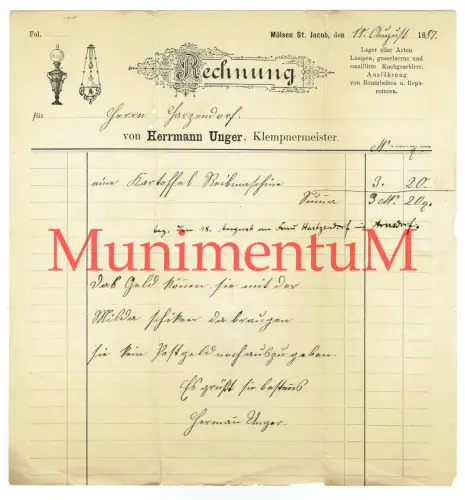 Fol.
Mülsen St. Jacob, den 18. August 1887.
Lager aller Arten
Lampen, gusseiserne und
emaillirte Kochgeschirre.
Ausführung
von Bauarbeiten u. Repa-
raturen.
Rechnung
für Herrn Harzendorf.
von Herrmann Unger, Klempnermeister.
M. ₰.
eine Kartoffel Reibmaschine 3. 20.
Suma 3 M. 20 ₰.
bez. am 28. August an Frau Hartzendorf in Arnsdorf.
MunimentuM
Das Geld könen sie mit der
Milda schiken da braugen
sie kein Postgeld noch auszu geben.
Es grüßt sie bestens
Herman Unger.